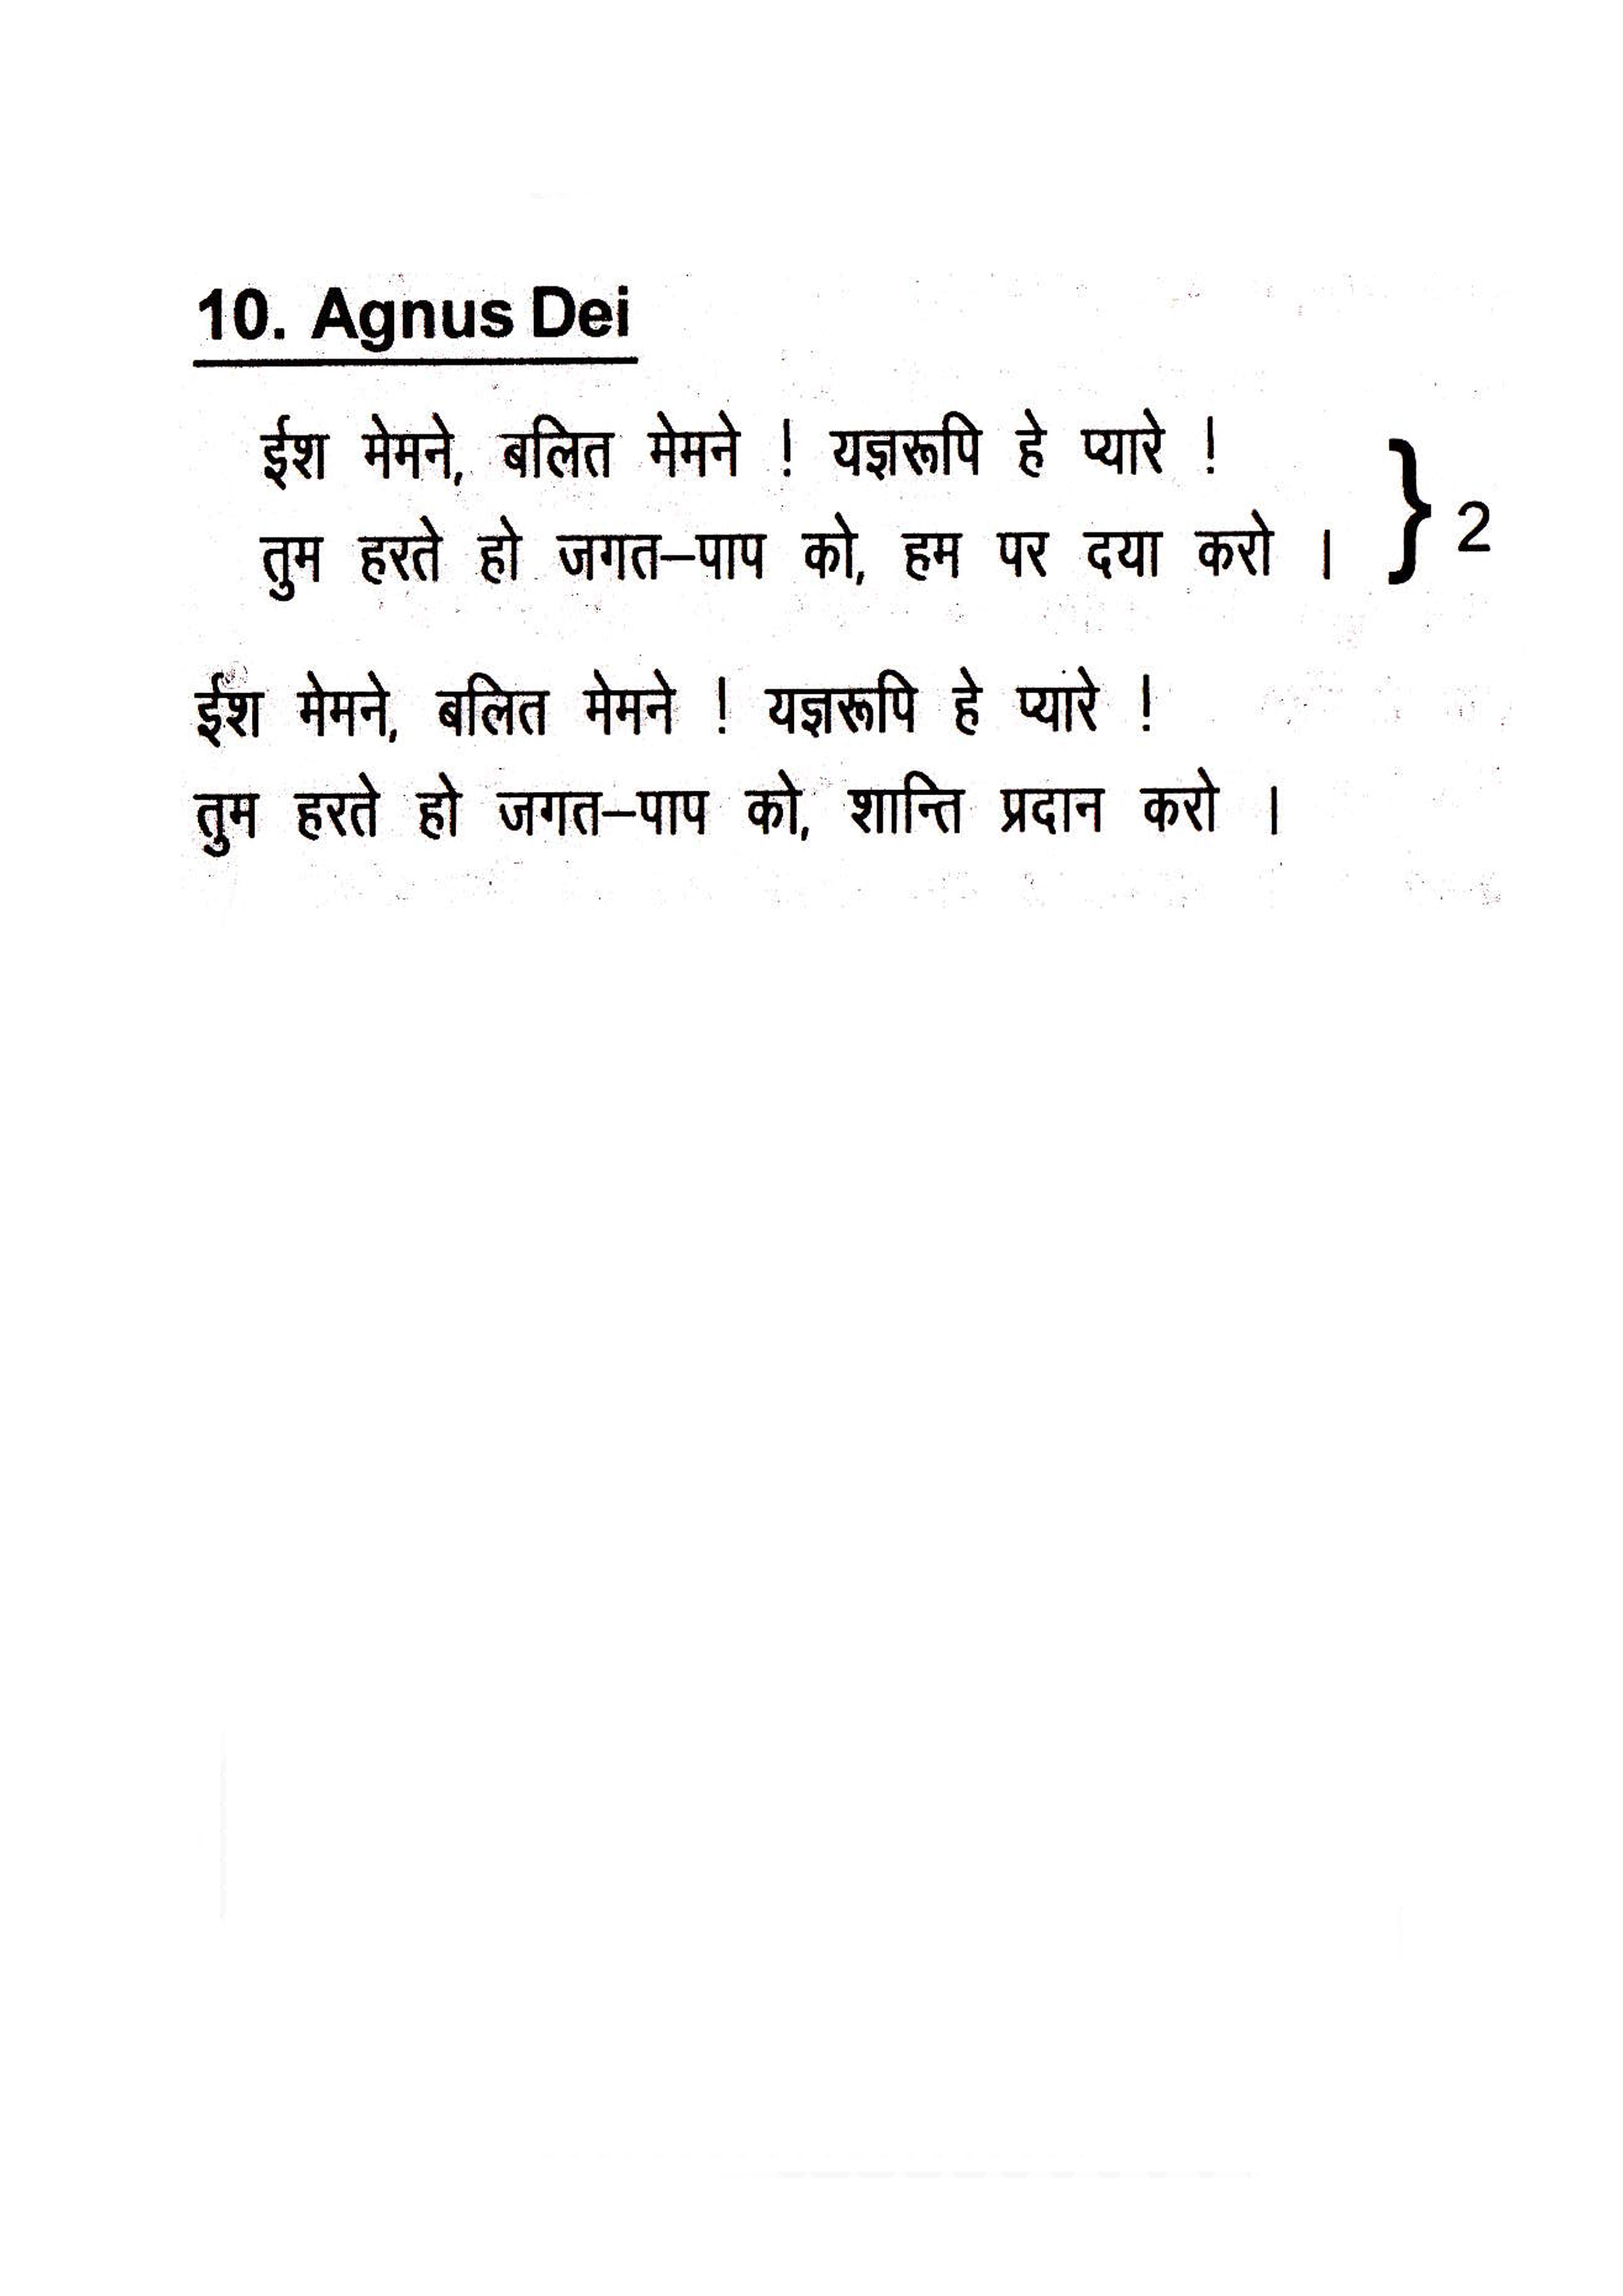 10. Agnus Dei
ईश मेमने, बलित मेमने ! यज्ञरूपि हे प्यारे !
तुम हरते हो जगत–पाप को, हम पर दया करो । } 2
ईश मेमने, बलित मेमने ! यज्ञरूपि हे प्यारे !
तुम हरते हो जगत–पाप को, शान्ति प्रदान करो ।